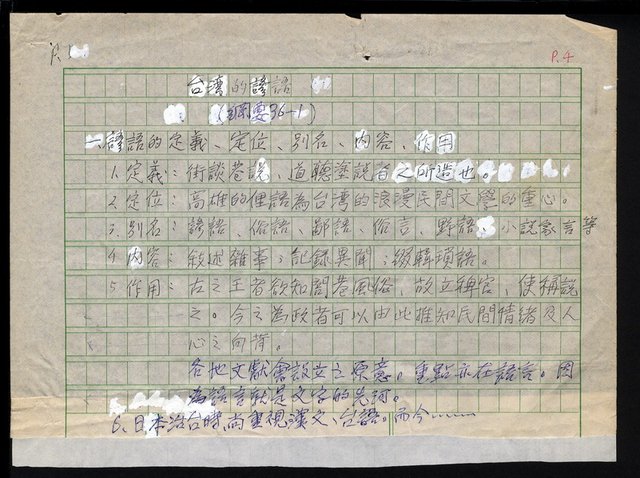 P.4
台湾的諺語
(綱要36-1)
一、諺語的定義、定位、別名、內容、作用
1. 定義：街談巷說，道聽塗說者之所造也。
2. 定位：高雄的俚語為台湾的浪漫民間文學的重心。
3. 別名：諺語、俗語、鄙語、俗言、野語、小說家言等
4. 內容：敘述雜事；記録異聞；綴輯瑣語。
5. 作用：古之王者欲知閭巷風俗，故立稗官，使稱說
之。今之為政者可以由此推知民間情緒及人
心之向背。
各地文献會設立之原意。重點亦在語言。因
為語言就是文字的先河。
6、日本治台時，尚重視漢文、台語。而今……